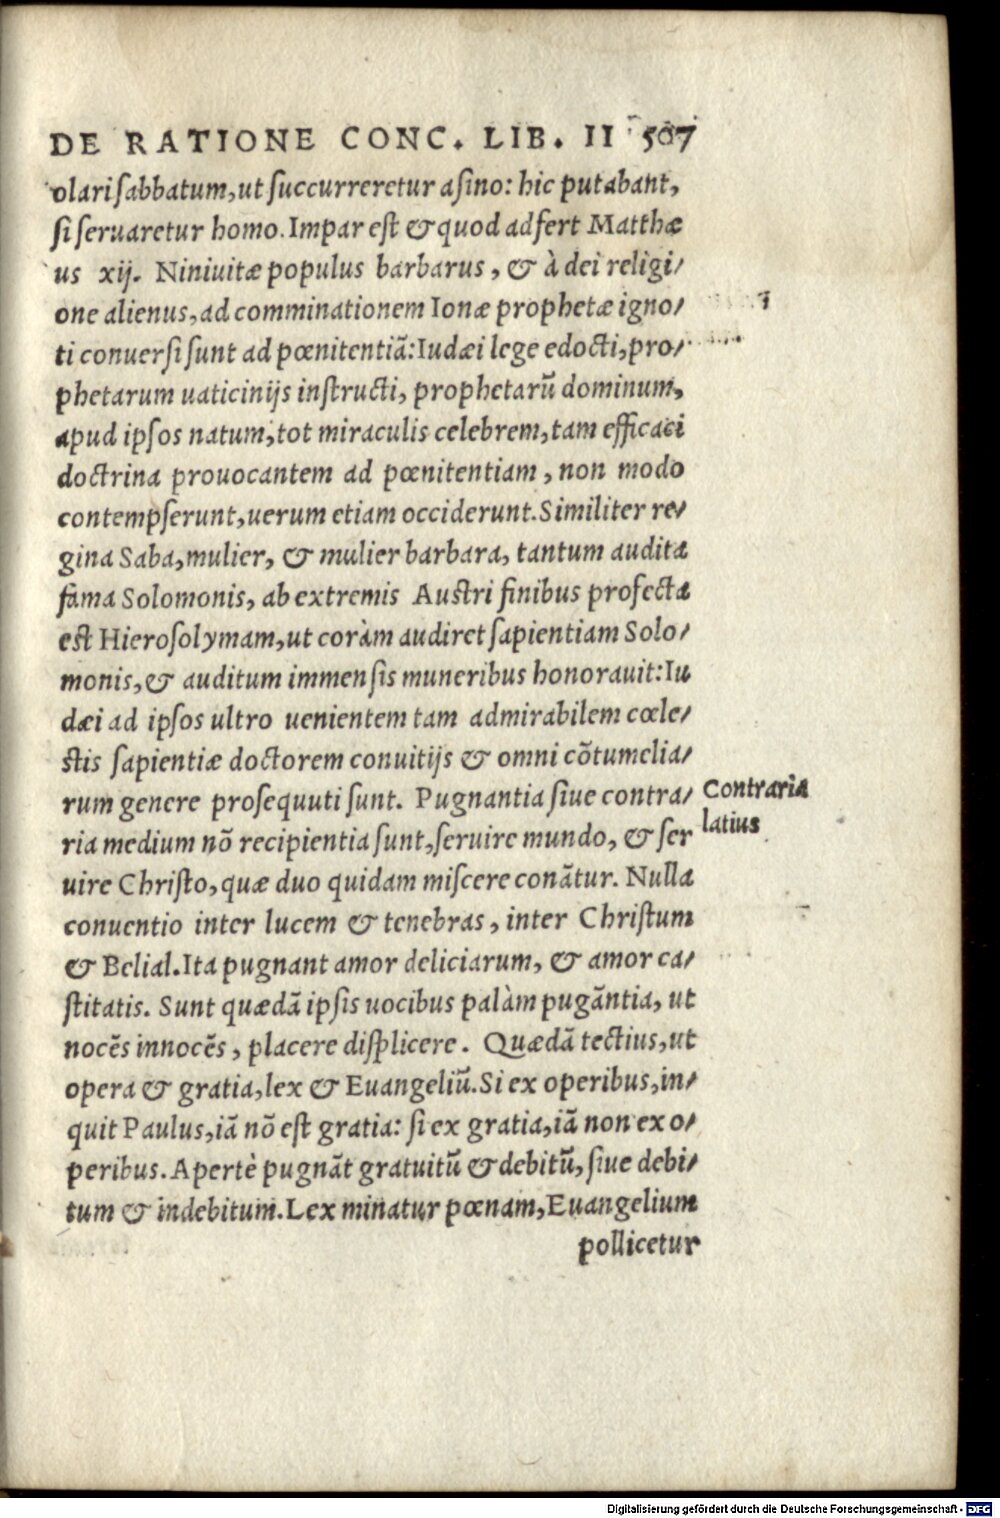 DE RATIONE CONC. LIB. II 507
olari sabbatum, ut succurreretur asino: hic putabant,
si seruaretur homo. Impar est & quod adfert Matthæ
us xij. Niniuitæ populus barbarus, & à dei religi/
one alienus, ad comminationem Ionæ prophetæ igno/
ti conuersi sunt ad pœnitentiã: Iudæi lege edocti, pro/
phetarum uaticinijs instructi, prophetarũ dominum,
apud ipsos natum, tot miraculis celebrem, tam efficaci
doctrina prouocantem ad pœnitentiam, non modo
contempserunt, uerum etiam occiderunt. Similiter re/
gina Saba, mulier, & mulier barbara, tantum audita
fama Solomonis, ab extremis Austri finibus profecta
est Hierosolymam, ut coràm audiret sapientiam Solo/
monis, & auditum immensis muneribus honorauit: Iu
dæi ad ipsos ultro uenientem tam admirabilem cœle/
stis sapientiæ doctorem conuitijs & omni cõtumelia/
rum genere prosequuti sunt. Pugnantia siue contra/
Contraria
latius
ria medium nõ recipientia sunt, seruire mundo, & ser
uire Christo, quæ duo quidam miscere conãtur. Nulla
conuentio inter lucem & tenebras, inter Christum
& Belial. Ita pugnant amor deliciarum, & amor ca/
stitatis. Sunt quædã ipsis uocibus palàm pugãntia, ut
nocẽs innocẽs, placere displicere. Quædã tectius, ut
opera & gratia, lex & Euangeliũ. Si ex operibus, in/
quit Paulus, iã nõ est gratia: si ex gratia, iã non ex o/
peribus. Apertè pugnãt gratuitũ & debitũ, siue debi/
tum & indebitum. Lex minatur pœnam, Euangelium
pollicetur
Digitalisierung gefördert durch die Deutsche Forschungsgemeinschaft - DFG